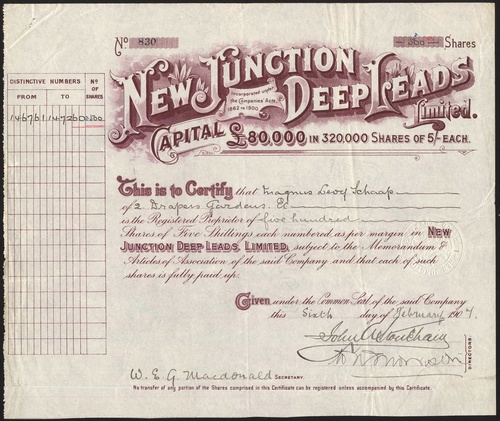 No 830 500 Shares
NEW JUNCTION
DEEP LEADS
Limited.
Incorporated under
the Companies' Acts,
1862 to 1900
CAPITAL £80,000 IN 320,000 SHARES OF 5/- EACH.
DISTINCTIVE NUMBERS
No OF SHARES
FROM TO
146761 147260 500
This is to Certify that Magnus Levy Schaap
of 2. Drapers Gardens. Ec
is the Registered Proprietor of five hundred
Shares of Five Shillings each numbered as per margin in NEW
JUNCTION DEEP LEADS, LIMITED, subject to the Memorandum &
Articles of Association of the said Company and that each of such
shares is fully paid up.
Given under the Common Seal of the said Company
this Sixth day of February 1907.
DIRECTORS.
W. E. G. Macdonald SECRETARY.
No transfer of any portion of the Shares comprised in this Certificate can be registered unless accompanied by this Certificate.